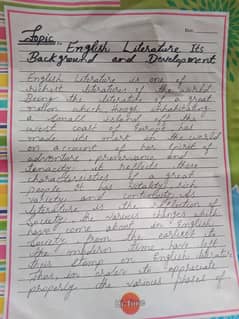 Topic
English Literature Its
Background and Development
English Literature is one of
richest literatures of the world.
Being the literature of a great
nation which though inhabiting
a small island off the
west coast of Europe has
made its mark in the world
on account of her spirit of
adventure, perseverance and
tenacity, it reflects these
characteristics of a great
people. It has vitality, rich
variety and continuity. As
literature is the reflection of
society, the various changes which
have come about in English
society from the earliest to
the modern time, have left
their stamp on English literature.
Thus in order to appreciate
properly the various phases of